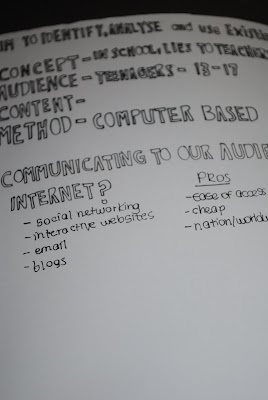 TO IDENTIFY, ANALYSE and use
CONCEPT - IN SCHOOL, LIES TO
AUDIENCE - TEENAGERS - 13-17
CONTENT -
METHOD - COMPUTER BASED
COMMUNICATING TO OUR
INTERNET?
- social networking
- interactive websites
- email
- blogs
PROS
- ease of access
- cheap